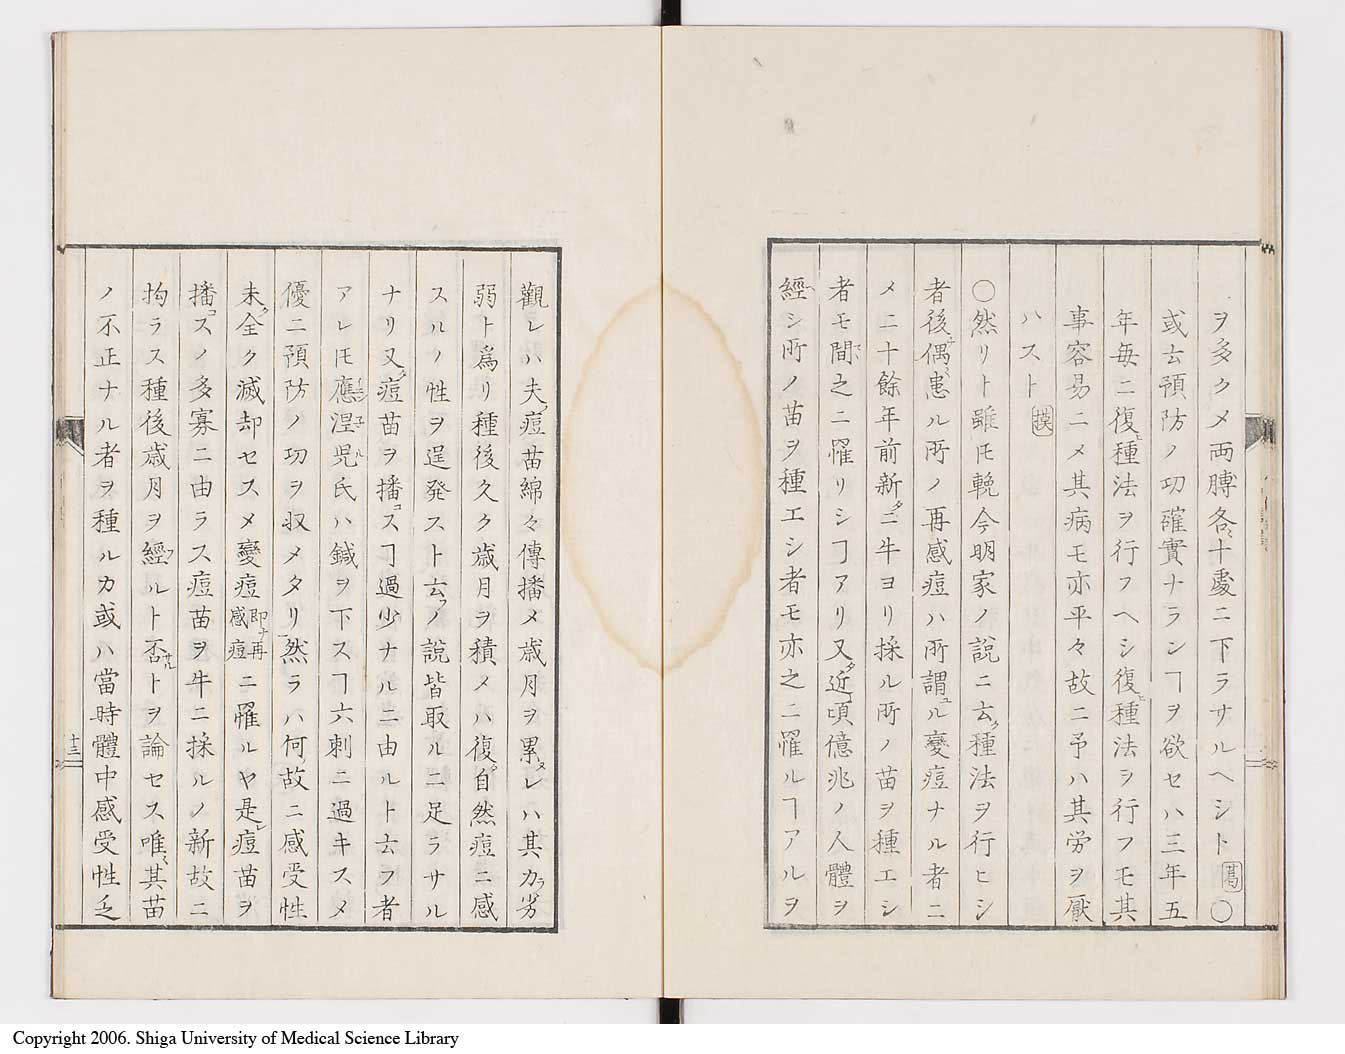 ヲ多クメ両膊各十處ニ下ラサルヘシト葛〇
或云預防ノ功確實ナランヿヲ欲セハ三年五
年毎ニ復種法ヲ行フヘシ復種法ヲ行フモ其
事容易ニメ其病モ亦平々故ニ予ハ其労ヲ厭
ハスト
〇然リト雖モ輓今明家ノ説ニ云種法ヲ行ヒシ
者後偶患ル所ノ再感痘ハ所謂ル變痘ナル者ニ
メ二十餘年前新ニ牛ヨリ採ル所ノ苗ヲ種エシ
者モ間之ニ罹リシヿアリ又近頃億兆ノ人體ヲ
經シ所ノ苗ヲ種エシ者モ亦之ニ罹ルヿアルヲ
觀レハ夫痘苗綿々傳播メ歳月ヲ累レハ其力劣
弱ト為リ種後久ク歳月ヲ積メハ復自然痘ニ感
スルノ性ヲ逞発スト云ノ説皆取ルニ足ラサル
ナリ又痘苗ヲ播スヿ過少ナルニ由ルト云フ者
アレ𪜈應涅児氏ハ鍼ヲ下スヿ六刺ニ過キスメ
優ニ預防ノ功ヲ収メタリ然ラハ何故ニ感受性
未全ク滅却セスメ變痘即再感痘ニ罹ルヤ是痘苗ヲ
播スノ多寡ニ由ラス痘苗ヲ牛ニ採ルノ新故ニ
拘ラス種後歳月ヲ經ルト否トヲ論セス唯其苗
ノ不正ナル者ヲ種ルカ或ハ當時體中感受性乏
十三
Copyright 2006. Shiga University of Medical Science Library